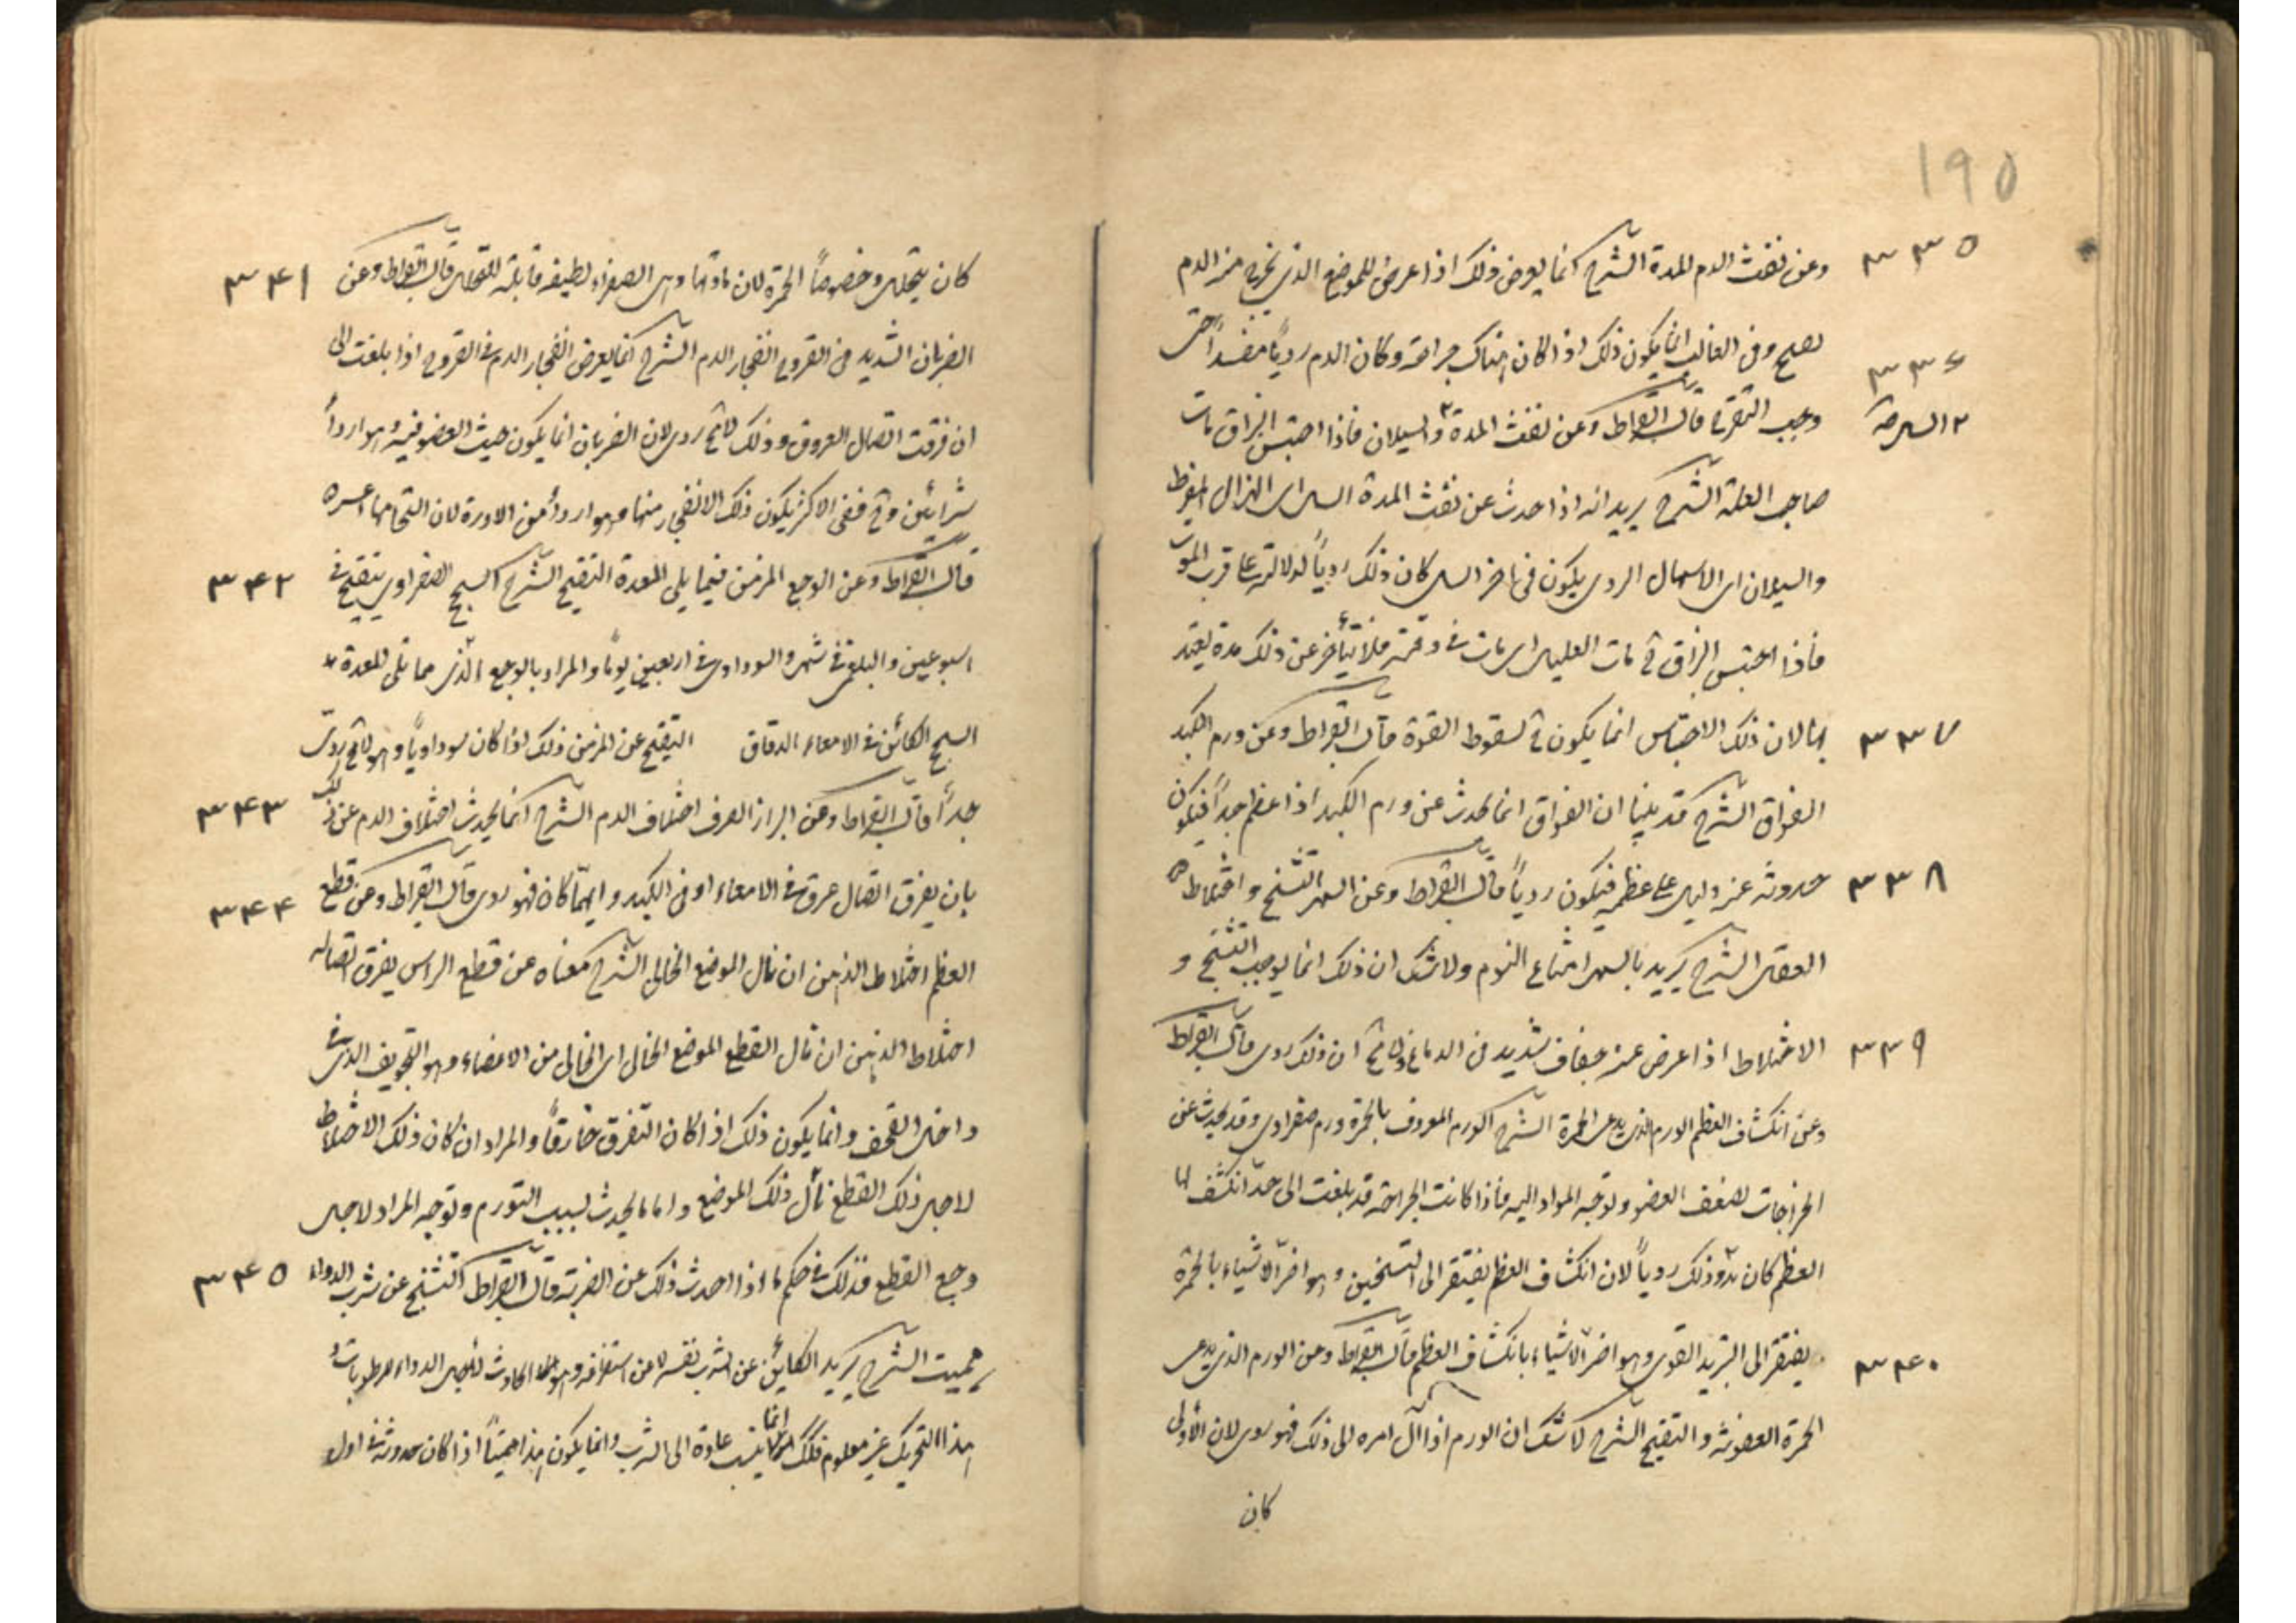 190
٣٣٥ وعن نفث الدم المدة الشرح انما يعرض ذلك اذا عرض للموضع الذى يخرج منه الدم
تقيح وفى الغالب انما يكون ذلك اذا كان هناك جراحة وكان الدم رديًا مفسدًا حتى
٣٣٦ وجب التقرح قال ابقراط وعن نفث المدة ٢ والسيلان فاذا احتبس البزاق مات
٢ السل صح
صاحب العلة الشرح يريد انه اذا حدث عن نفث المدة السل اى الهزال المفرط
والسيلان اى الاسهال الردى يكون فى اخر السل كان ذلك رديًا لدلالته على قرب الموت
فاذا احتبس البزاق ح مات العليل اى مات فى وقته فلا يتأخر عن ذلك مدة يعتد
٣٣٧ بها لان ذلك الاحتباس انما يكون ح لسقوط القوة قال ابقراط وعن ورم الكبد
الفواق الشرح قد بينا ان الفواق انما يحدث عن ورم الكبد اذا عظم جدًا فيكون
٣٣٨ حدوثه عنه دليل على عظمه فيكون رديًا قال ابقراط وعن السهر التشنج واختلاط
العقل الشرح يريد بالسهر امتناع النوم ولا شك ان ذلك انما يوجب التشنج و
٣٣٩ الاختلاط اذا عرض عنه جفاف شديد فى الدماغ ولا شك ح ان ذلك ردى قال ابقراط
وعن انكشاف العظم الورم الذى يدعى الحمرة الشرح الورم المعروف بالحمرة ورم صفراوى وقد يحدث عن
الخراجات لضعف العضو وتوجه المواد اليه فاذا كانت الجراحة قد بلغت الى حد انكشف لها
العظم كان ذلك رديًا لان انكشاف العظم يفتقر الى التسخين وهو اضر الاشياء بالحمرة
٣٤٠ يفتقر الى التبريد القوى وهو اضر الاشياء بانكشاف العظم قال ابقراط وعن الورم الذى يدعى
الحمرة العفونة والتقيح الشرح لا شك ان الورم اذا آل امره الى ذلك فهو ردى لان الأولى
كان
٣٤١ كان يتحلل وخصوصًا الحمرة لان مادتها وهى الصفراء لطيفه قابلة للتحلل قال ابقراط وعن
الضربان الشديد فى القروح انفجار الدم الشرح انما يعرض انفجار الدم فى القروح اذا بلغت الى
ان فرقت اتصال العروق وذلك لا محالة ردى لان الضربان انما يكون حيث العضو فيه
شرائين وح ففى الاكثر يكون ذلك الانفجار منها وهو اردأ من الاوردة لان التحامها عسره
٣٤٢ قال ابقراط وعن الوجع المزمن فيما يلى المعدة التقيح الشرح السحج الصفراوى يتقيح فى
اسبوعين والبلغمى فى شهر والسوداوى فى اربعين يومًا والمراد بالوجع الذى مما يلى المعدة
السحج الكائن فى الامعاء الدقاق التقيح عن المزمن ذلك اذا كان سوداويًا وهو لا محالة ردى
٣٤٣ جدًا قال ابقراط وعن البراز الصرف اختلاف الدم الشرح انما يحدث اختلاف الدم عن ذلك
٣٤٤ بان يفرق اتصال عرق فى الامعاء او فى الكبد وايهما كان فهو ردى قال ابقراط وعن قطع
العظم اختلاط الذهن ان نال الموضع الخالى الشرح معناه عن قطع الراس يفرق اتصاله
اختلاط الذهن ان نال القطع الموضع الخالى اى الخالى من الاعضاء وهو التجويف الذى فى
داخل القحف وانما يكون ذلك اذا كان التفرق خارقًا والمراد ان كان ذلك الاختلاط
لاجل ذلك القطع نال ذلك الموضع واما ما يحدث بسبب التورم وتوجه المراد لاجل
٣٤٥ وجع القطع فذلك فى حكم ما اذا احدث ذلك عن الضربة قال ابقراط التشنج عن شرب الدواء
مميت الشرح يريد الكاين عن الشرب نفسه لا عن استفراغه وهو الحادث لتحريك الدواء لرطوبات و
هذا التحريك غير معلوم فلذلك انما ينسب عادة الى الشرب وانما يكون هذا مميتًا اذا كان حدوثه فى اول